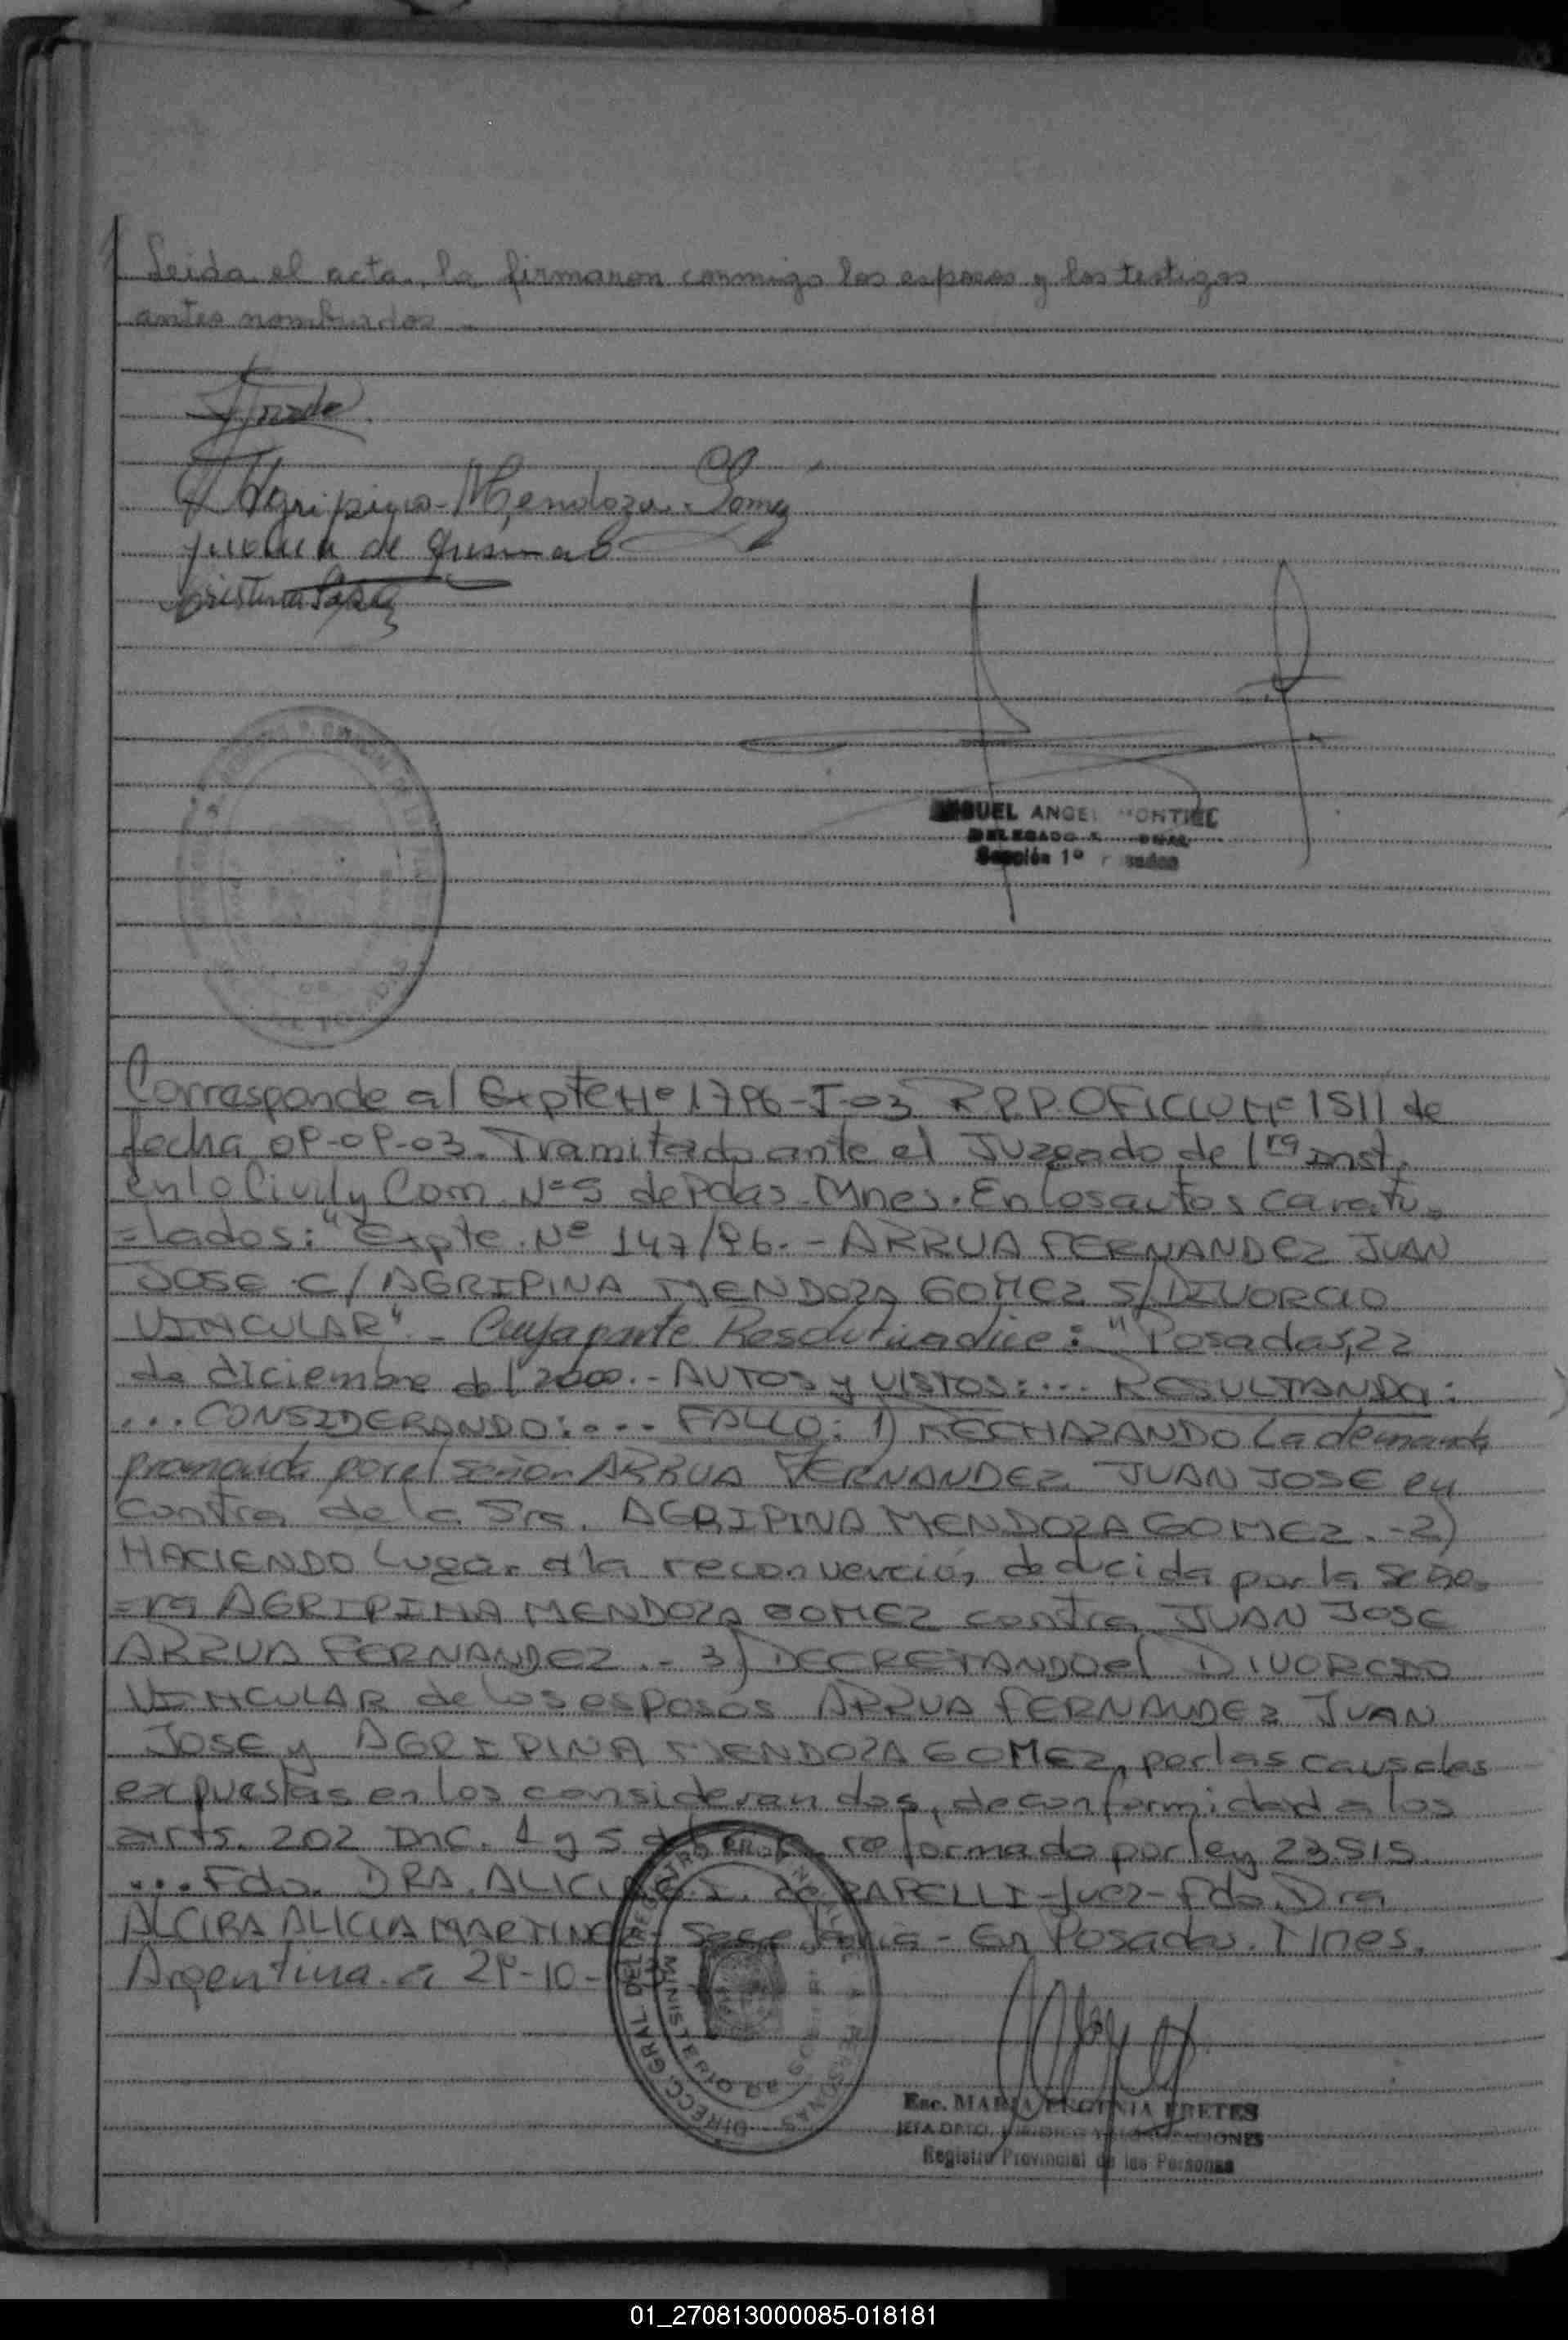 Leida el acta, la firmaron conmigo los esposos y los testigos
antes nombrados
Agripina Mendoza Gomez
de Gusman
Cristina
MIGUEL ANGEL MONTIEL
DELEGADO
Sección 1º
Corresponde al Expte Nº 1796-I-03 R.P.P. OFICIO Nº 1511 de
fecha 09-09-03. Tramitado ante el Juzgado de 1ra Inst.
en lo Civil y Com. Nº 5 de Pdas. Mnes. En los autos caratu=
=lados: "Expte. Nº 147/96. - ARRUA FERNANDEZ JUAN
JOSE C/ AGRIPINA MENDOZA GOMEZ S/DIVORCIO
VINCULAR". - Cuya parte Resolutiva dice: "Posadas, 22
de diciembre del 2000. - AUTOS y VISTOS: ... RESULTANDO:
... CONSIDERANDO: ... FALLO: 1) RECHAZANDO la demanda
promovida por el señor ARRUA FERNANDEZ JUAN JOSE en
contra de la Sra. AGRIPINA MENDOZA GOMEZ. - 2)
HACIENDO lugar a la reconvención deducida por la Seño=
=ra AGRIPINA MENDOZA GOMEZ contra JUAN JOSE
ARRUA FERNANDEZ. - 3) DECRETANDO el DIVORCIO
VINCULAR de los esposos ARRUA FERNANDEZ JUAN
JOSE y AGRIPINA MENDOZA GOMEZ, por las causales
expuestas en los considerandos, de conformidad a los
arts. 202 inc. 1 y 5 reformado por ley 23.515.
... Fdo. DRA. ALICIA de ZAPELLI - Juez - Fdo. Dra
ALCIRA ALICIA MARTINEZ - Secretaria - En Posadas. Mnes.
Argentina. a 29-10-
DIRECC. GRAL. DEL REGISTRO PROVINCIAL DE LAS PERSONAS
MINISTERIO DE
Esc. MARIA EUGENIA FRETES
JEFA DPTO. JURIDICO Y
Registro Provincial de las Personas
01_270813000085-018181